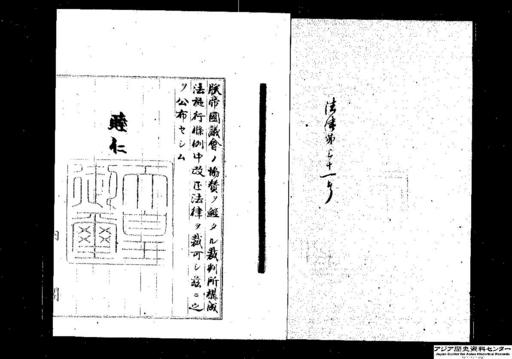 法律第三十一号
朕帝國議會ノ協賛ヲ經タル裁判所構成
法施行條例中改正法律ヲ裁可シ茲ニ之
ヲ公布セシム
睦仁
天皇
御璽
アジア歴史資料センター
Japan Center for Asian Historical Records